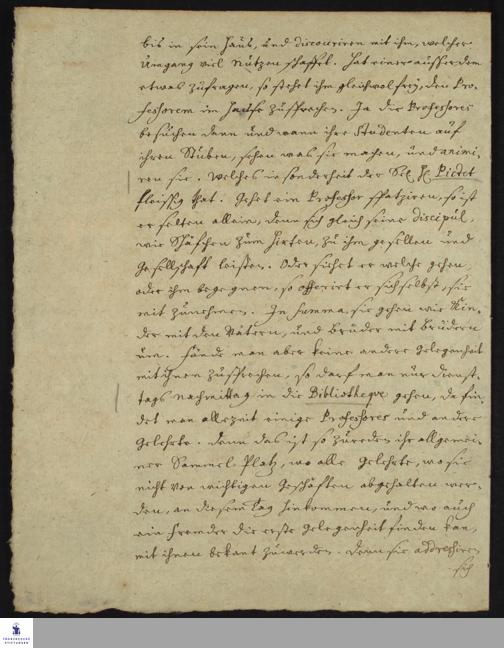 bis in sein Haus, und discouriren mit ihm, welcher
Umgang viel Nutzen schaffet. Hat einer ausserdem
etwas zufragen, so stehet ihm gleichwol frey, den Pro-
fessorem im Hause zusprechen. Ja die Professores
besuchen dann und wann ihre Studenten auf
ihren Stuben, sehen was sie machen, und animi-
ren sie. Welches insonderheit der Pictet
fleissig that. Gehet ein Professor spatziren, so ist
er selten allein, denn sich gleich seine discipul,
wie Schäfchen zum Hirten, zu ihm gesellen und
Gesellschaft leisten. Oder siehet er welche gehen,
oder ihm begegnen, so offerirt er sich selbst, sie
mit zunehmen. In summa, sie gehen wie Kin-
der mit den Vätern, und Brüder mit Brüdern
um. Fände man aber keine andere Gelegenheit
mit ihnen zusprechen, so darf man nur dienst-
tags nachmittag in die Bibliotheqve gehen, da fin-
det man allezeit einige Professores und andere
Gelehrte. Denn das ist so zureden ihr allgemei-
ner Samel-Platz, wo alle Gelehrte, wo sie
nicht von wichtigen Geschäften abgehalten wer-
den, an diesem Tag hinkommen, und wo auch
ein Fremder die erste Gelegenheit finden kan,
mit ihnen bekant zuwerden. Denn sie addressiren
sich
FRANCKESCHE
STIFTUNGEN